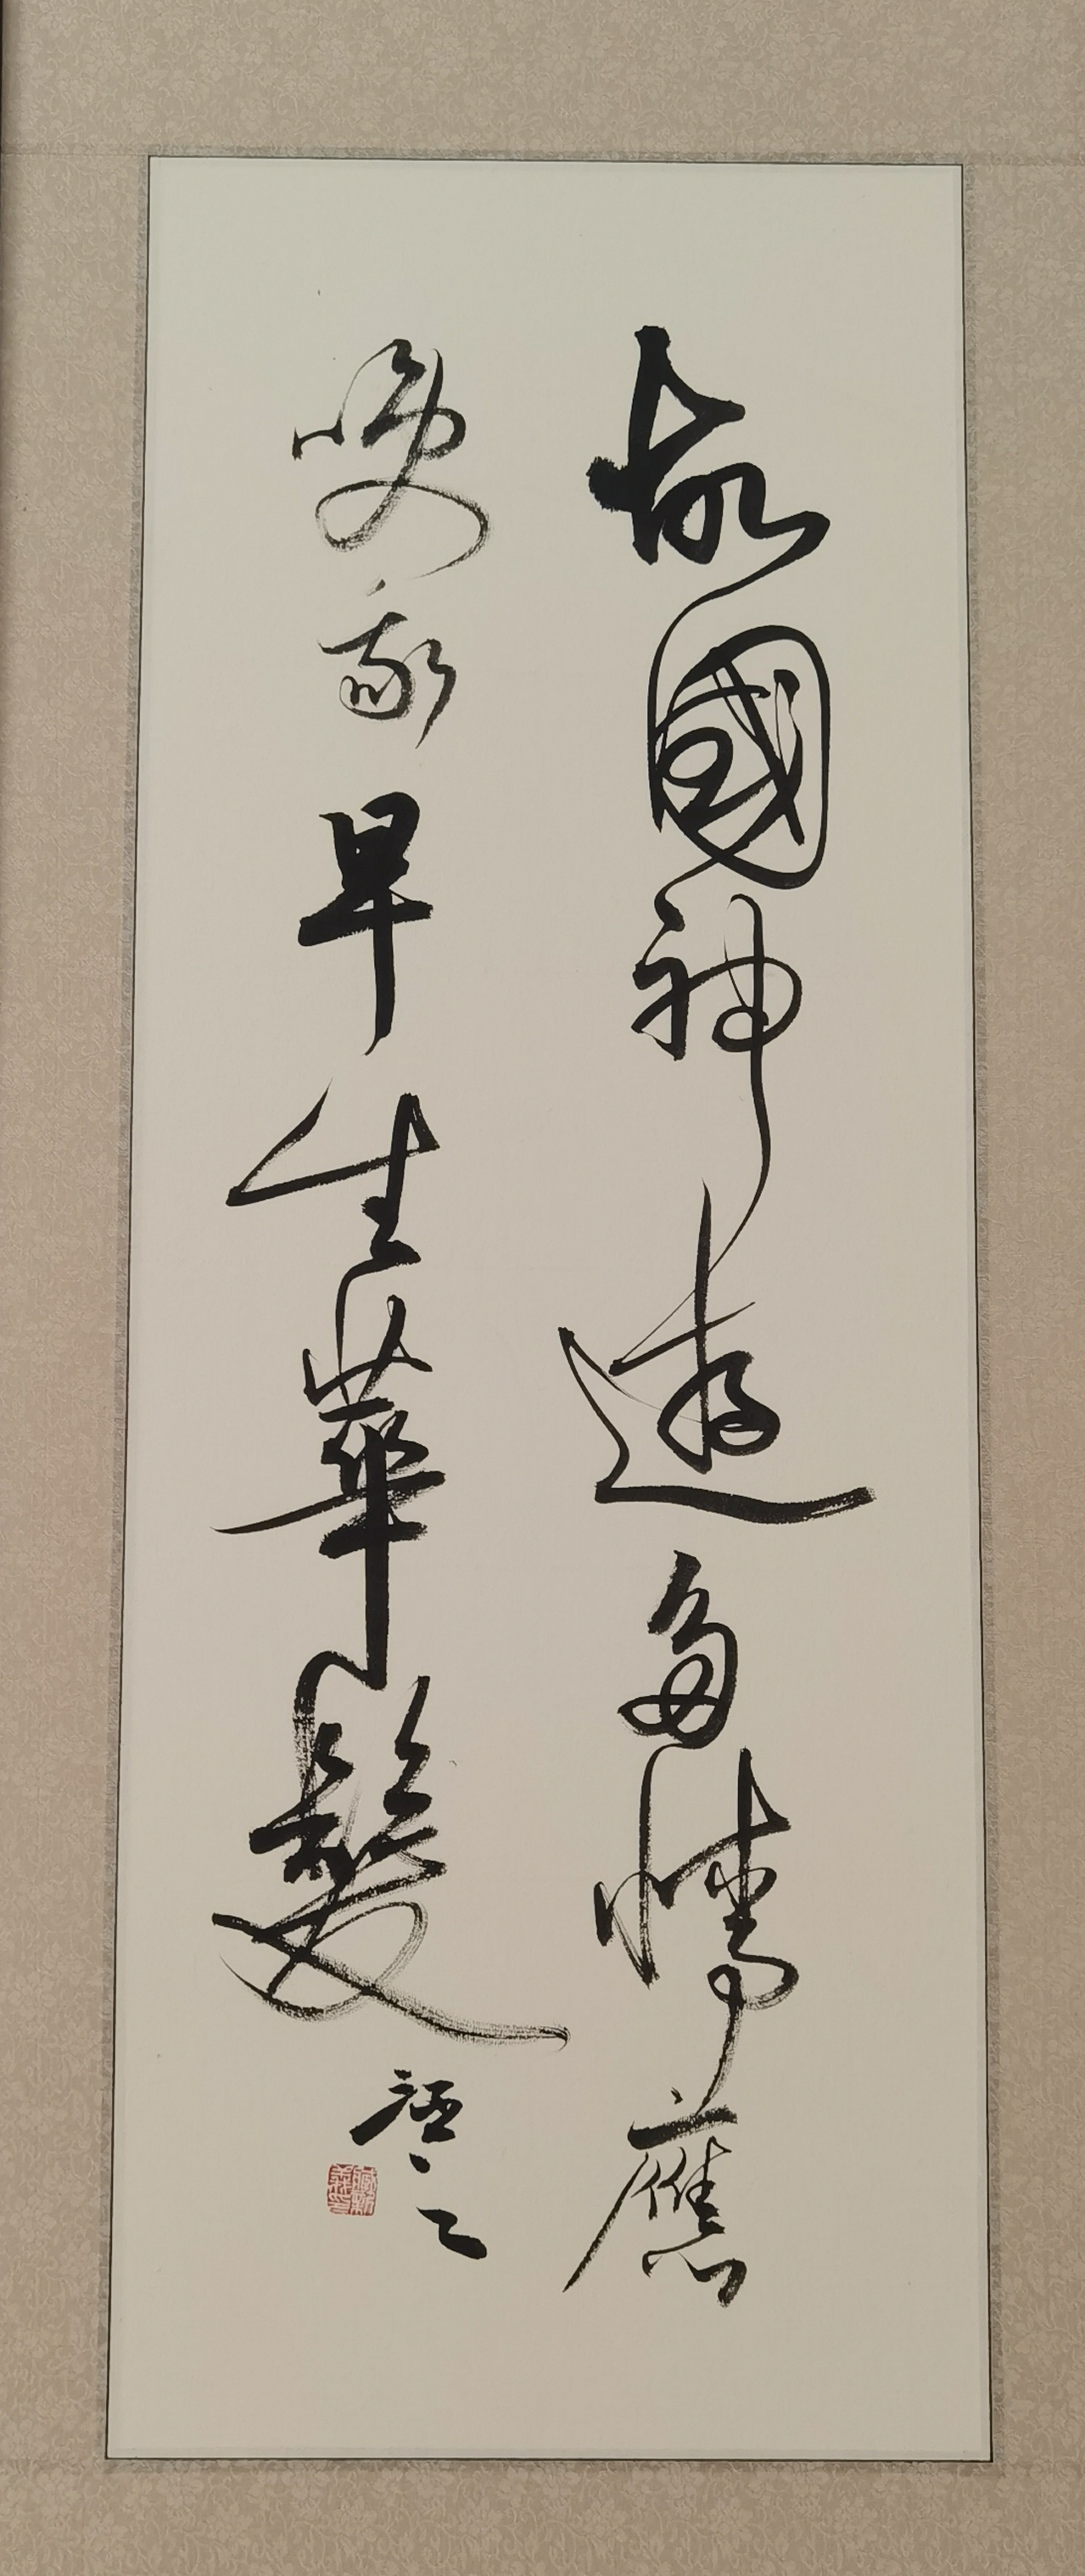 故國神遊多情應
笑我早生華髮